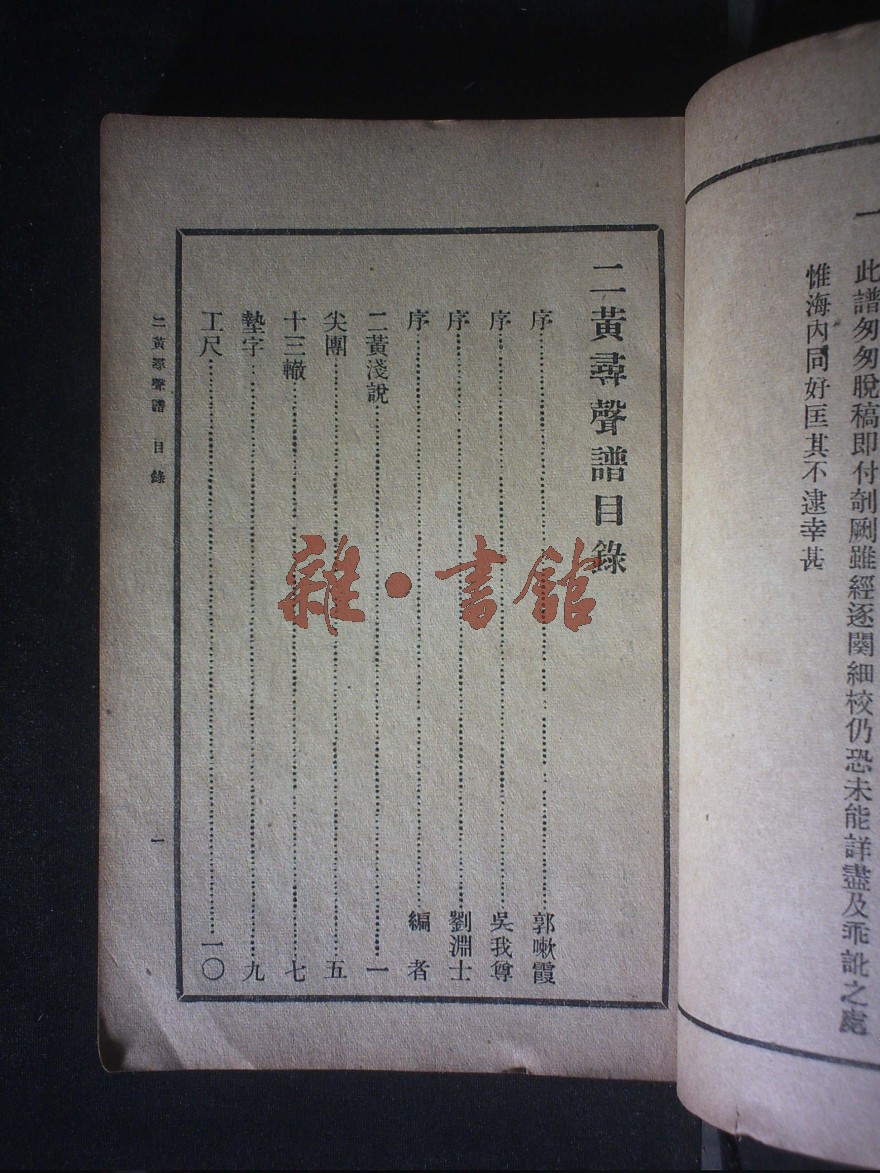 一 此譜匆匆脫稿即付剞劂雖經逐闋細校仍恐未能詳盡及乖訛之處
惟海內同好匡其不逮幸甚
二黃尋聲譜目錄
序 郭嗽霞
序 吳我尊
序 劉淵士
序 編者
二黃淺說 一
尖團 五
十三轍 七
墊字 九
工尺 一〇
二黃尋聲譜 目錄 一
雜·書館